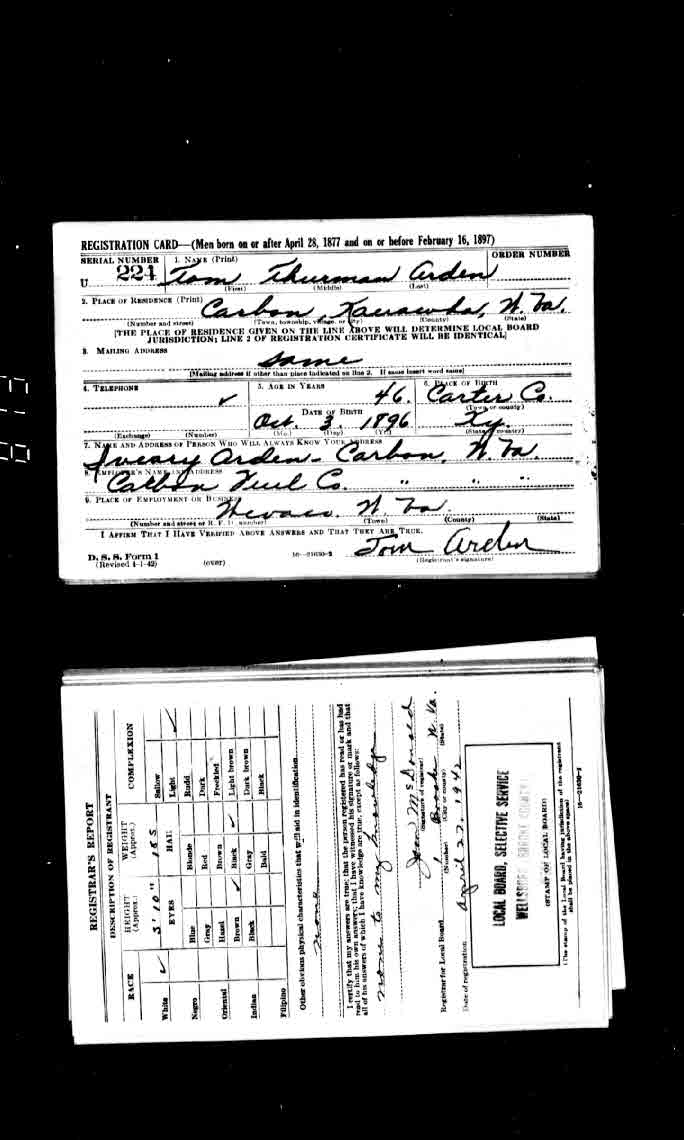 REGISTRATION CARD—(Men born on or after April 28, 1877 and on or before February 16, 1897)
SERIAL NUMBER 1. NAME (Print) ORDER NUMBER
U 224 Tom Thurman Arden
(First) (Middle) (Last)
2. PLACE OF RESIDENCE (Print)
Carbon, Kanawha, W. Va.
(Number and street) (Town, township, village, or city) (County) (State)
[THE PLACE OF RESIDENCE GIVEN ON THE LINE ABOVE WILL DETERMINE LOCAL BOARD
JURISDICTION; LINE 2 OF REGISTRATION CERTIFICATE WILL BE IDENTICAL]
3. MAILING ADDRESS
Same
[Mailing address if other than place indicated on line 2. If same insert word same]
4. TELEPHONE 5. AGE IN YEARS 6. PLACE OF BIRTH
46. Carter Co.
DATE OF BIRTH (Town or county)
Oct. 3. 1896 Ky.
(Exchange) (Number) (Mo.) (Day) (Yr.) (State or country)
7. NAME AND ADDRESS OF PERSON WHO WILL ALWAYS KNOW YOUR ADDRESS
Arden - Carbon, W. Va.
8. EMPLOYER'S NAME AND ADDRESS
Carbon Fuel Co. " " "
9. PLACE OF EMPLOYMENT OR BUSINESS
W. Va.
(Number and street or R. F. D. number) (Town) (County) (State)
I AFFIRM THAT I HAVE VERIFIED ABOVE ANSWERS AND THAT THEY ARE TRUE.
D. S. S. Form 1
(Revised 4-1-42) (over) 16—21630-2 Tom Arden
(Registrant's signature)
REGISTRAR'S REPORT
DESCRIPTION OF REGISTRANT
RACE HEIGHT (Approx.) WEIGHT (Approx.) COMPLEXION
5' 10" 165
White EYES HAIR Sallow
Light
Negro Blue Blonde Ruddy
Gray Red Dark
Oriental Hazel Brown Freckled
Brown Black Light brown
Indian Black Gray Dark brown
Bald Black
Filipino
Other obvious physical characteristics that will aid in identification
none
I certify that my answers are true; that the person registered has read or has had
read to him his own answers; that I have witnessed his signature or mark and that
all of his answers of which I have knowledge are true, except as follows:
none to my knowledge
McDonald
(Signature of registrar)
Registrar for Local Board 1 Brooke W. Va.
(Number) (City or county) (State)
Date of registration April 27, 1942
LOCAL BOARD, SELECTIVE SERVICE
WELLSBURG BROOKE COUNTY
(STAMP OF LOCAL BOARD)
(The stamp of the Local Board having jurisdiction of the registrant
shall be placed in the above space)
16—21630-1